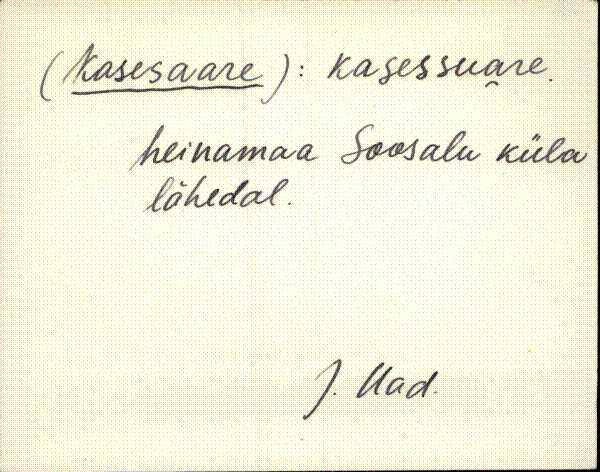 (Kasesaare): kasessuare.
heinamaa Soosalu küla
lähedal.
J. Mad.